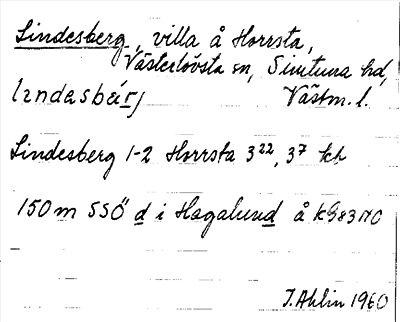 Lindesberg, villa å Horrsta,
Västerlövsta sn, Simtuna hd,
lındasbárj Västm. l.
Lindesberg 1-2 Horrsta 3²², 3⁷ kh
150 m SSÖ d i Hagalund å k 983 NO
J. Ahlin 1960